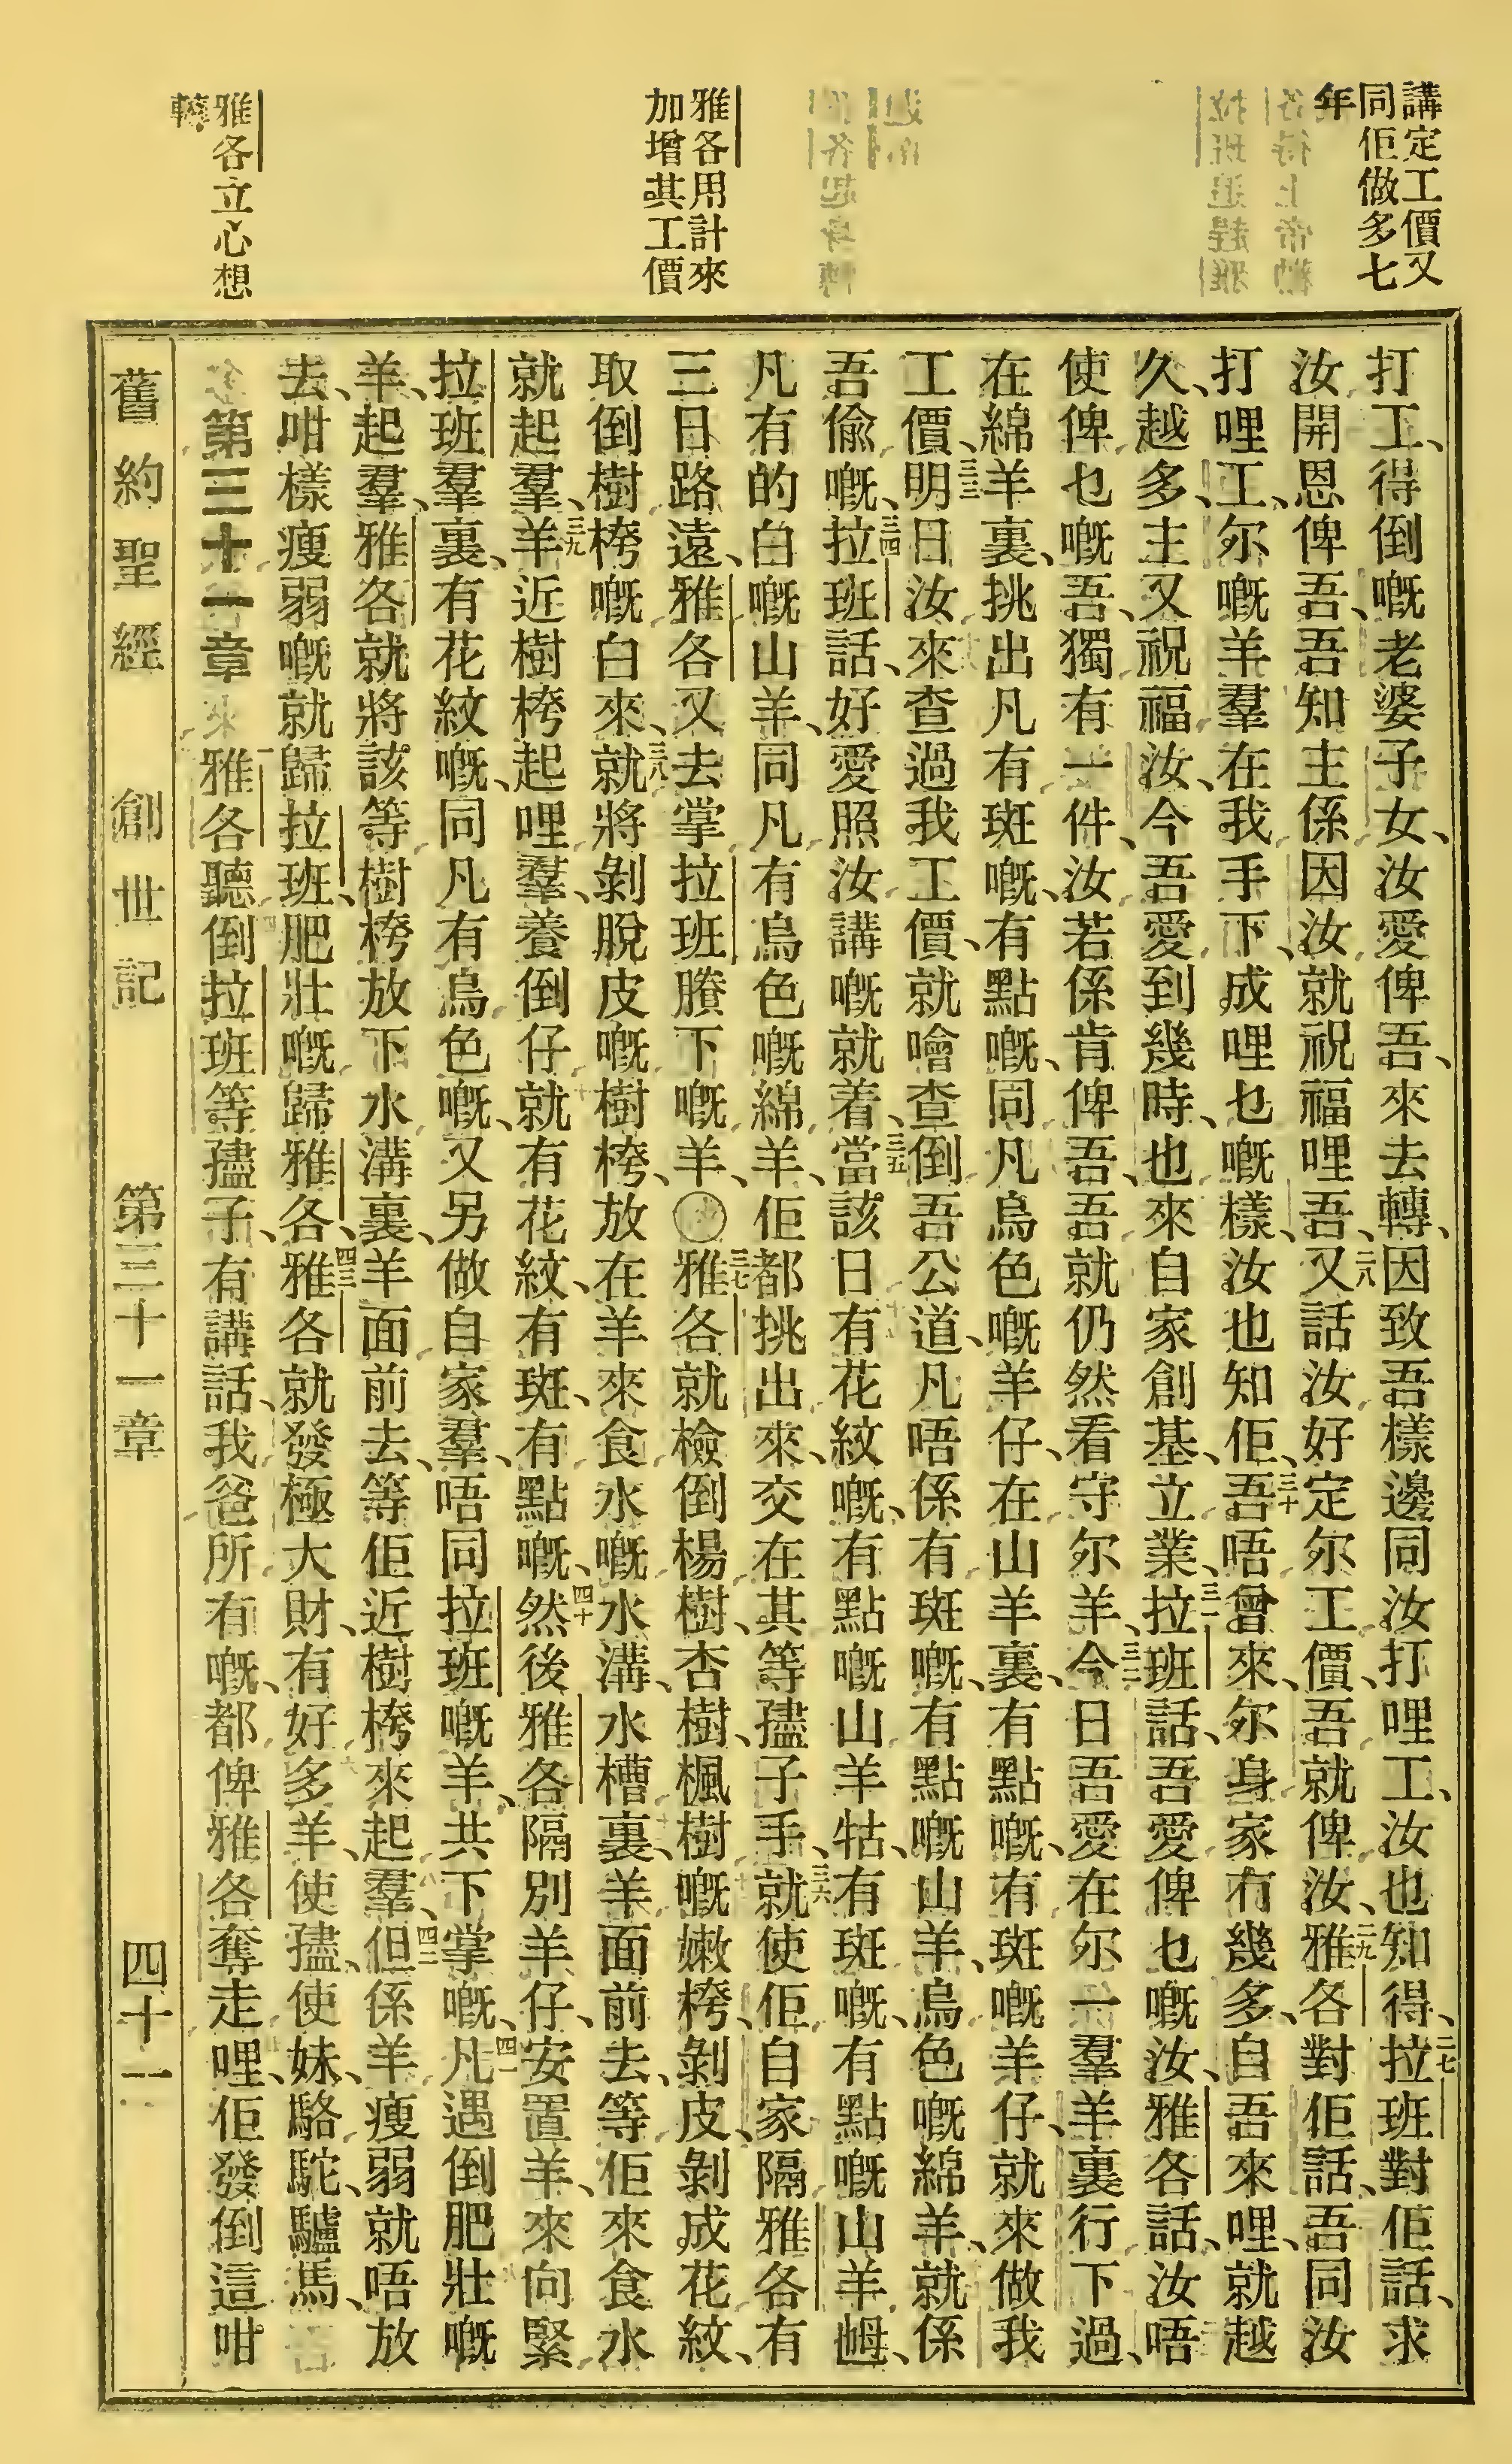 講定工價又
同佢做多七
年
雅各用計來
加增其工價
雅各立心想
轉
打工、得倒嘅老婆子女、汝愛俾吾、來去轉、因致吾樣邊同汝打哩工、汝也知得、二七拉班對佢話、求
汝開恩俾吾、吾知主係因汝、就祝福哩吾、二八又話汝好定尔工價、吾就俾汝、二九雅各對佢話、吾同汝
打哩工、尔嘅羊羣在我手下、成哩乜嘅樣、汝也知佢、三十吾唔曾來、尔身家有幾多、自吾來哩、就越
久、越多、主又祝福汝、今吾愛到幾時、也來自家創基、立業、三一拉班話、吾愛俾乜嘅汝、雅各話、汝唔
使俾乜嘅吾、獨有一件、汝若係肯俾吾、吾就仍然看守尔羊、三二今日吾愛在尔一羣羊裏行下過、
在綿羊裏、挑出凡有斑嘅、有點嘅、同凡烏色嘅羊仔、在山羊裏、有點嘅、有斑嘅羊仔、就來做我
工價、三三明日汝來查過我工價、就噲查倒吾公道、凡唔係有斑嘅、有點嘅山羊、烏色嘅綿羊、就係
吾偷嘅、三四拉班話、好愛照汝講嘅就着、三五當該日有花紋嘅、有點嘅山羊牯、有斑嘅、有點嘅山羊𪵗、
凡有的白嘅山羊、同凡有烏色嘅綿羊、佢都挑出來、交在其等孻子手、三六就使佢自家隔雅各有
三日路遠、雅各又去掌拉班賸下嘅羊、○三七雅各就檢倒楊樹、杏樹、楓樹嘅嫩桍、剝皮、剝成花紋、
取倒樹桍嘅白來、三八就將剝脫皮嘅樹桍、放在羊來食水嘅水溝、水槽裏、羊面前去、等佢來食水
就起羣、三九羊近樹桍起哩羣、養倒仔、就有花紋、有斑、有點嘅、四十然後雅各隔別羊仔、安置羊、來向緊
拉班羣裏、有花紋嘅、同凡有烏色嘅、又另做自家羣、唔同拉班嘅羊、共下掌嘅、四一凡遇倒肥壯嘅
羊、起羣、雅各就將該等樹桍放下水溝裏、羊面前去、等佢近樹桍來起羣、四二但係羊瘦弱就唔放
去、咁樣瘦弱嘅就歸拉班、肥壯嘅歸雅各、四三雅各就發極大財、有好多羊、使孻、使妹、駱駝、驢馬、
第三十一章　一雅各聽倒拉班等孻子、有講話、我爸所有嘅、都俾雅各奪走哩、佢發倒這咁
舊約聖經　創世記　第三十一章　四十一